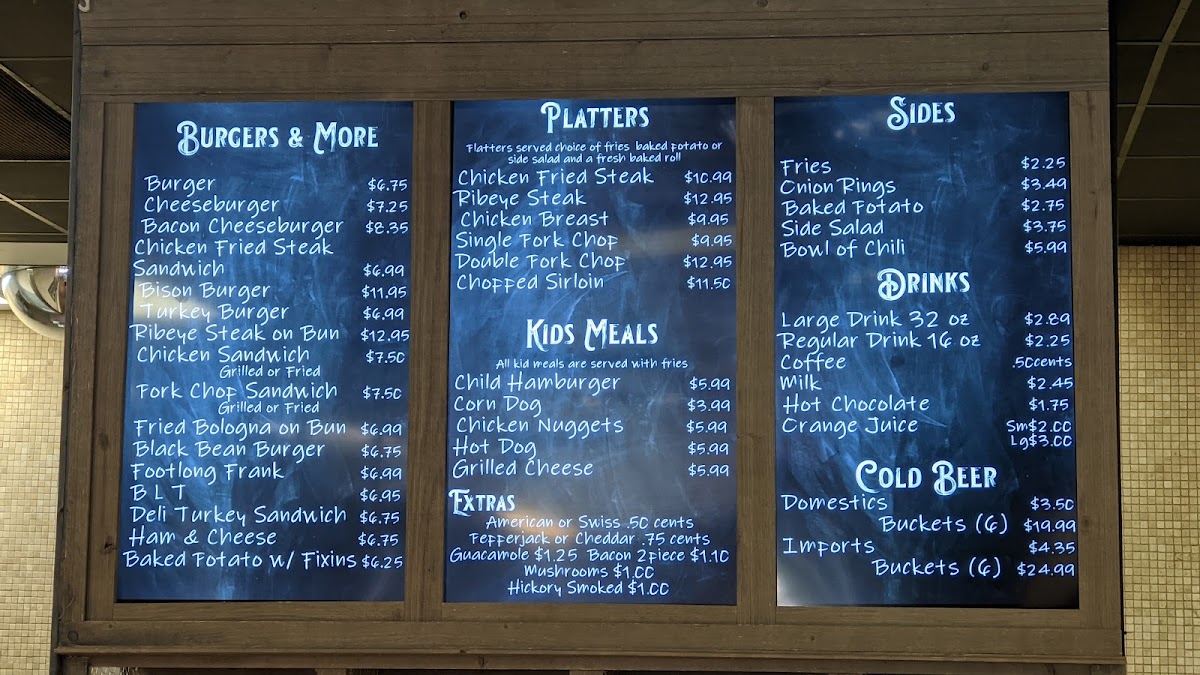 Burgers & More
Burger $6.75
Cheeseburger $7.25
Bacon Cheeseburger $8.35
Chicken Fried Steak
Sandwich $6.99
Bison Burger $11.95
Turkey Burger $6.99
Ribeye Steak on Bun $12.95
Chicken Sandwich $7.50
Grilled or Fried
Pork Chop Sandwich $7.50
Grilled or Fried
Fried Bologna on Bun $6.99
Black Bean Burger $6.75
Footlong Frank $6.99
B L T $6.95
Deli Turkey Sandwich $6.75
Ham & Cheese $6.75
Baked Potato w/ Fixins $6.25
Platters
Platters served choice of fries baked potato or
side salad and a fresh baked roll
Chicken Fried Steak $10.99
Ribeye Steak $12.95
Chicken Breast $9.95
Single Pork Chop $9.95
Double Pork Chop $12.95
Chopped Sirloin $11.50
Kids Meals
All kid meals are served with fries
Child Hamburger $5.99
Corn Dog $3.99
Chicken Nuggets $5.99
Hot Dog $5.99
Grilled Cheese $5.99
Extras
American or Swiss .50 cents
Pepperjack or Cheddar .75 cents
Guacamole $1.25 Bacon 2piece $1.10
Mushrooms $1.00
Hickory Smoked $1.00
Sides
Fries $2.25
Onion Rings $3.49
Baked Potato $2.75
Side Salad $3.75
Bowl of Chili $5.99
Drinks
Large Drink 32 oz $2.89
Regular Drink 16 oz $2.25
Coffee .50cents
Milk $2.45
Hot Chocolate $1.75
Orange Juice Sm$2.00
Lg$3.00
Cold Beer
Domestics $3.50
Buckets (6) $19.99
Imports $4.35
Buckets (6) $24.99